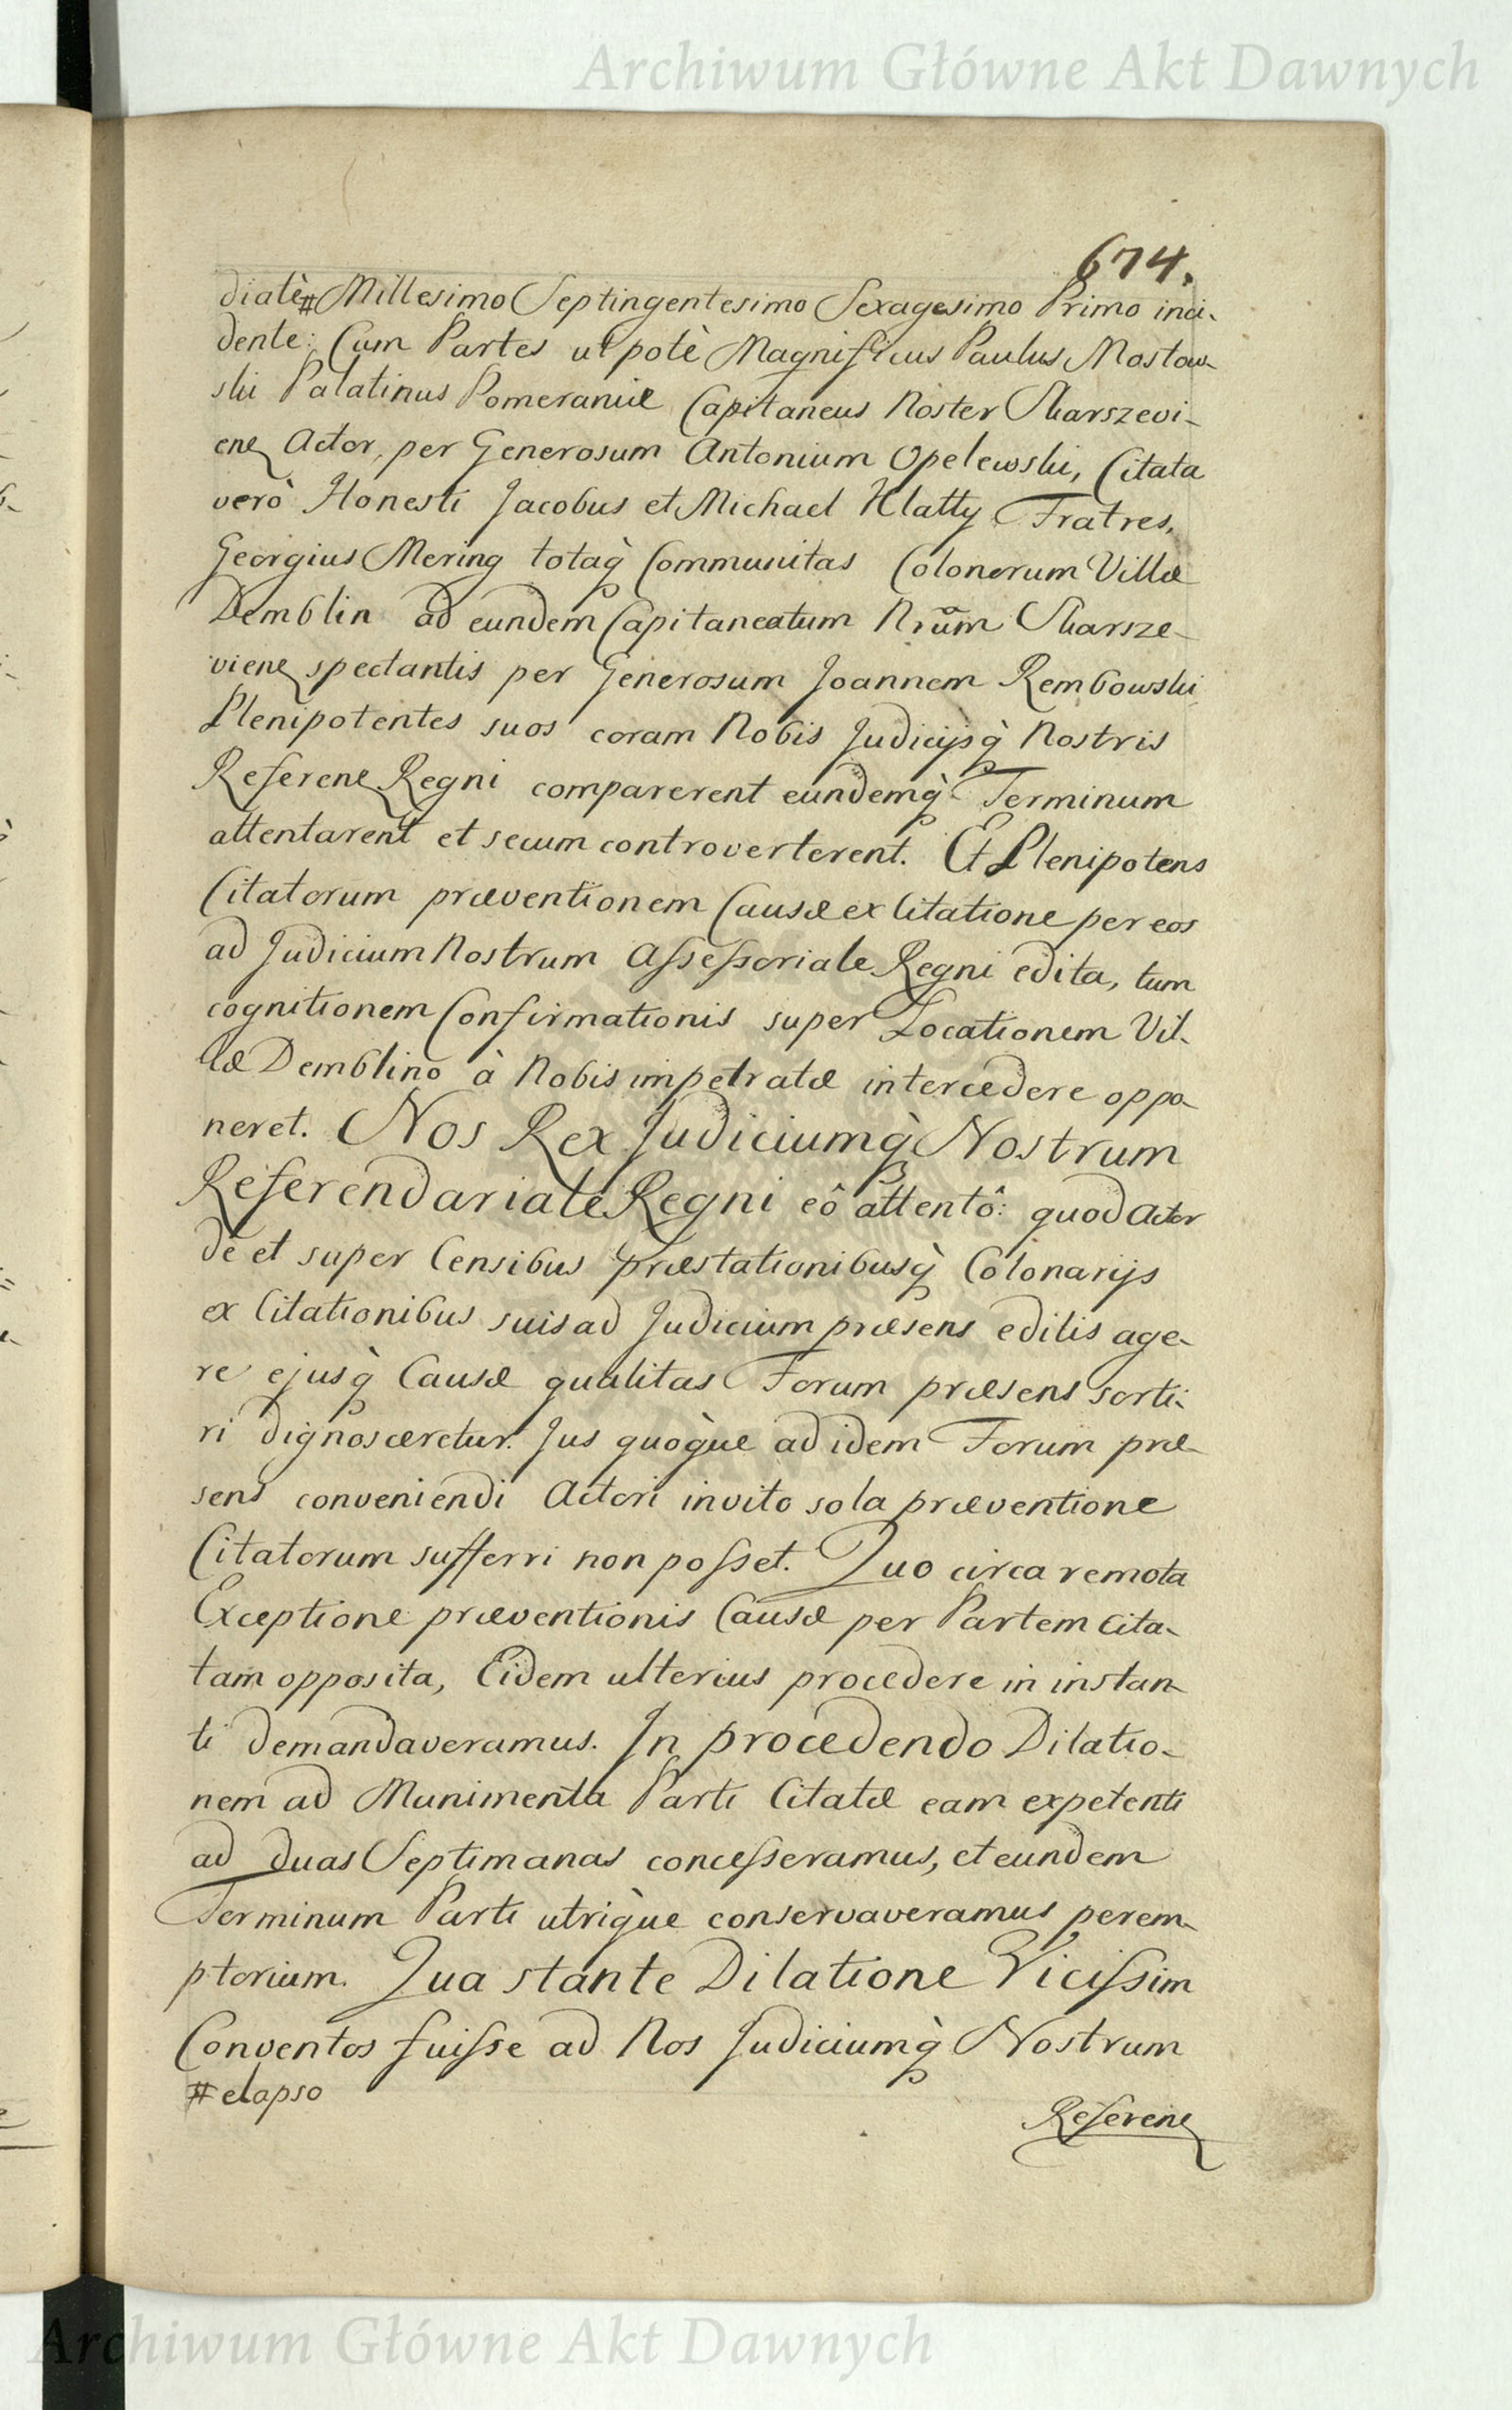 Archiwum Główne Akt Dawnych
674.
diatè # Millesimo Septingentesimo Sexagesimo Primo inci-
dente: Cum Partes utpotè Magnificus Paulus Mostow-
ski Palatinus Pomeraniæ Capitaneus Noster Skarszevi-
enẽ Actor, per Generosum Antonium Opelewski, Citata
verò Honesti Jacobus et Michael Klatty Fratres,
Georgius Mering totaq̀ Communitas Colonorum Villæ
Demblin ad eundem Capitaneatum Nrũm Skarsze-
vienẽ spectantis per Generosum Joannem Rembowski
Plenipotentes suos coram Nobis Judicijsq̀ Nostris
Referenẽ Regni comparerent eundemq̀ Terminum
attentarent et secum controverterent. Et Plenipotens
Citatorum præventionem Causæ ex Citatione per eos
ad Judicium Nostrum Assessoriale Regni edita, tum
cognitionem Confirmationis super Locationem Vil-
læ Demblino à Nobis impetratæ intercedere oppo-
neret. Nos Rex Judiciumq̀ Nostrum
Referendariale Regni eô attentô: quod Actor
de et super Censibus præstationibusq̀ Colonarijs
ex Citationibus suis ad Judicium præsens editis age-
re ejusq̀ Causæ qualitas Forum præsens sorti-
ri dignosceretur. Jus quoq̀ue ad idem Forum præ-
sens conveniendi Actori invito sola præventione
Citatorum sufferri non posset. Quo circa remota
Exceptione præventionis Causæ per Partem Cita-
tam opposita, Eidem ulterius procedere in instan-
ti demandaveramus. In procedendo Dilatio-
nem ad Munimenta Parti Citatæ eam expetenti
ad duas Septimanas concesseramus, et eundem
Terminum Parti utriq̀ue conservaveramus perem-
ptorium. Qua stante Dilatione Vicissim
Conventos fuisse ad Nos Judiciumq̀ Nostrum
# elapso
Referenẽ
Archiwum Główne Akt Dawnych